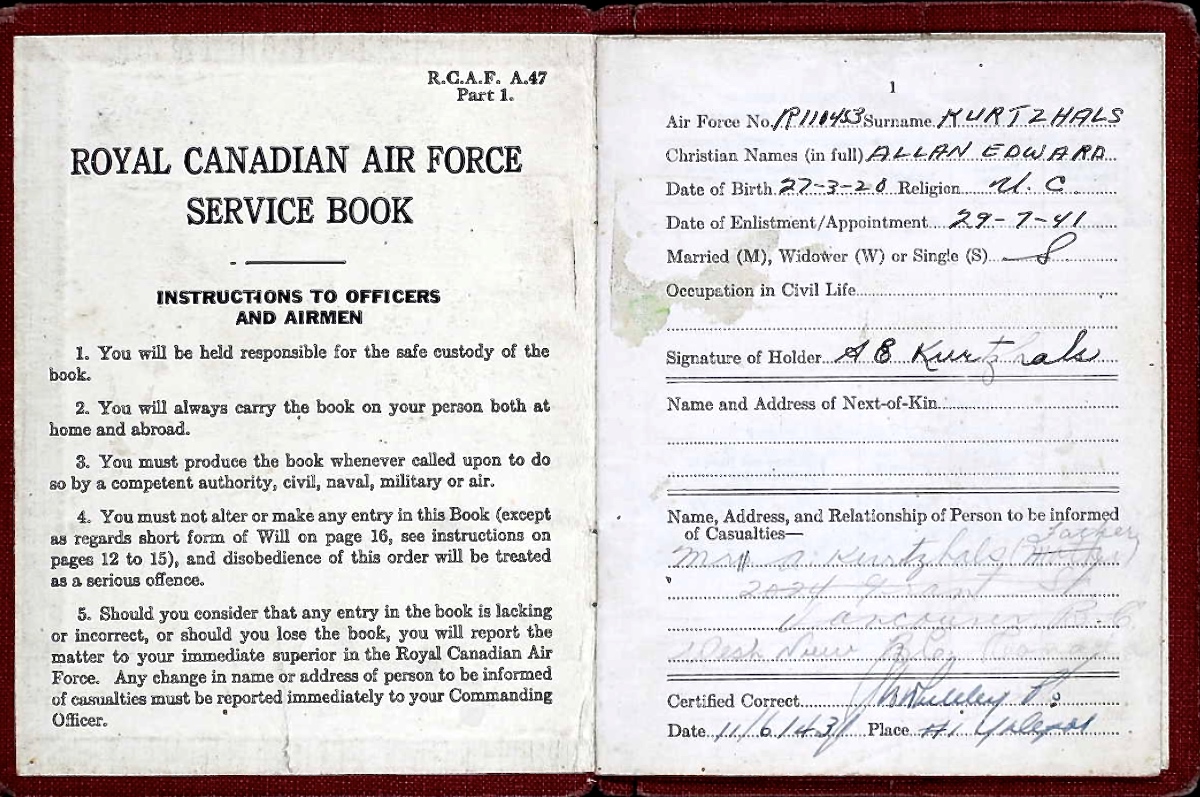 R.C.A.F. A.47
Part 1.
ROYAL CANADIAN AIR FORCE
SERVICE BOOK
INSTRUCTIONS TO OFFICERS
AND AIRMEN
1. You will be held responsible for the safe custody of the
book.
2. You will always carry the book on your person both at
home and abroad.
3. You must produce the book whenever called upon to do
so by a competent authority, civil, naval, military or air.
4. You must not alter or make any entry in this Book (except
as regards short form of Will on page 16, see instructions on
pages 12 to 15), and disobedience of this order will be treated
as a serious offence.
5. Should you consider that any entry in the book is lacking
or incorrect, or should you lose the book, you will report the
matter to your immediate superior in the Royal Canadian Air
Force. Any change in name or address of person to be informed
of casualties must be reported immediately to your Commanding
Officer.
1
Air Force No. R110453 Surname KURTZHALS
Christian Names (in full) ALLAN EDWARD
Date of Birth 27-3-20 Religion U.C.
Date of Enlistment/Appointment 29-7-41
Married (M), Widower (W) or Single (S) S
Occupation in Civil Life
Signature of Holder A E Kurtzhals
Name and Address of Next-of-Kin
Name, Address, and Relationship of Person to be informed
of Casualties— Father
Kurtzhals
2024 Grant St
Vancouver B.C.
West B.C. Canada
Certified Correct
Date 11/6/43 Place